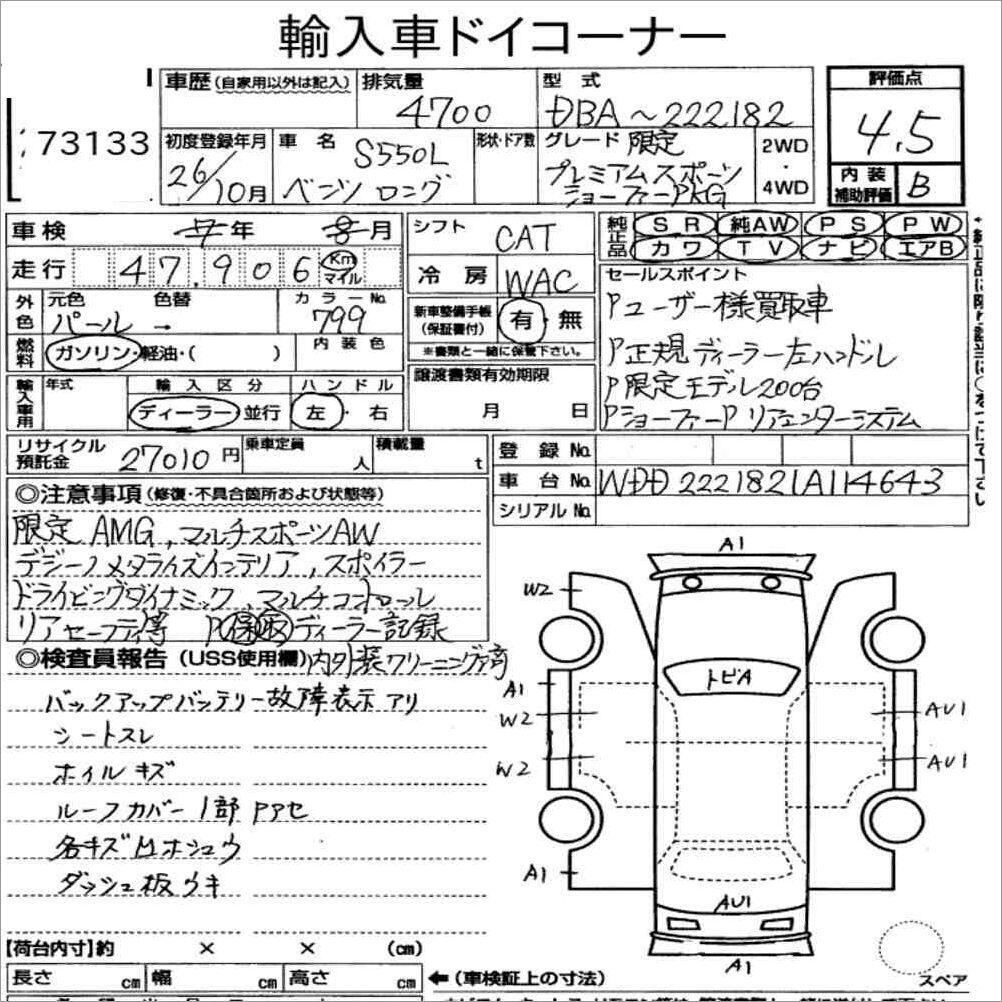 輸入車ドイコーナー
73133
車歴(自家用以外は記入)
排気量
4700
型式
DBA～222182
評価点
4.5
初度登録年月
26/10月
車名
S550L
ベンツ ロング
形状・ドア数
グレード 限定
プレミアムスポーツ
ショーファーPKG
2WD
・
4WD
内装
補助評価
B
車検 7年 8月
走行 47,906 Km
マイル
シフト CAT
冷房 WAC
純正品
SR 純AW PS PW
カワ TV ナビ エアB
外色
元色 色替
パール →
カラーNo.
799
内装色
燃料
ガソリン・軽油・( )
新車整備手帳
(保証書付)
有・無
※書類と一緒に保管下さい。
セールスポイント
Pユーザー様買取車
P正規ディーラー左ハンドル
P限定モデル200台
PショーファーP リアエンターシステム
輸入車用
年式
輸入区分
ディーラー 並行
ハンドル
左・右
譲渡書類有効期限
月 日
リサイクル
預託金
27010円
乗車定員
人
積載量
t
登録No.
車台No. WDD2221821A114643
シリアルNo.
◎注意事項(修復・不具合箇所および状態等)
限定 AMG, マルチスポーツAW
デジーノメタライズインテリア, スポイラー
ドライビングダイナミック, マルチコントロール
リアセーフティ等 P保取ディーラー記録
◎検査員報告(USS使用欄)内外装クリーニング済
バックアップバッテリー故障表示アリ
シートスレ
ホイルキズ
ルーフカバー1部
各キズ
ダッシュ板ウキ
A1
W2
トビA
A1
W2
AU1
W2
AU1
A1
AU1
A1
スペア
【荷台内寸】約 × × (cm)
長さ cm 幅 cm 高さ cm
←(車検証上の寸法)